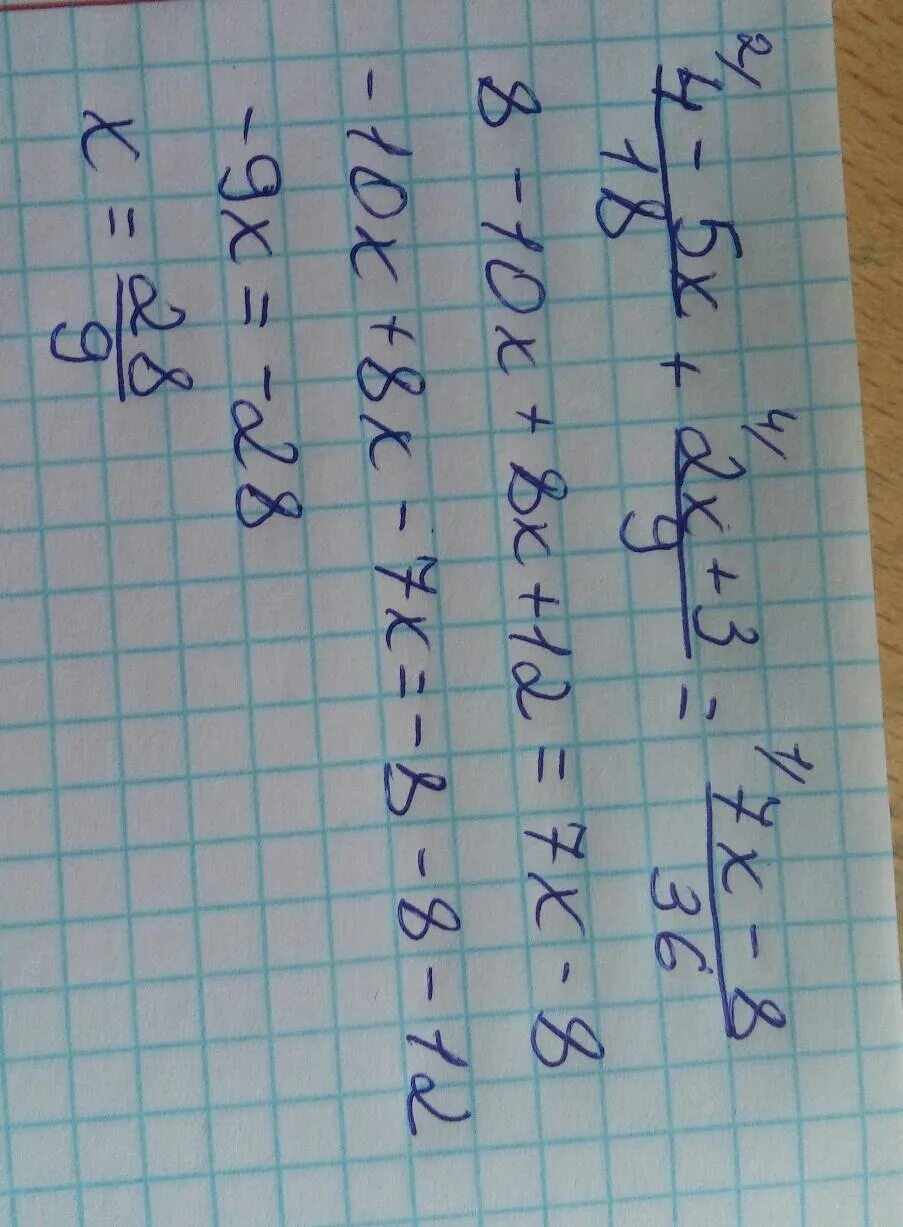 2/ 4/ 1/
4 - 5x + 2x + 3 = 7x - 8
18 9 36
8 - 10x + 8x + 12 = 7x - 8
-10x + 8x - 7x = -8 - 8 - 12
-9x = -28
x = 28
9